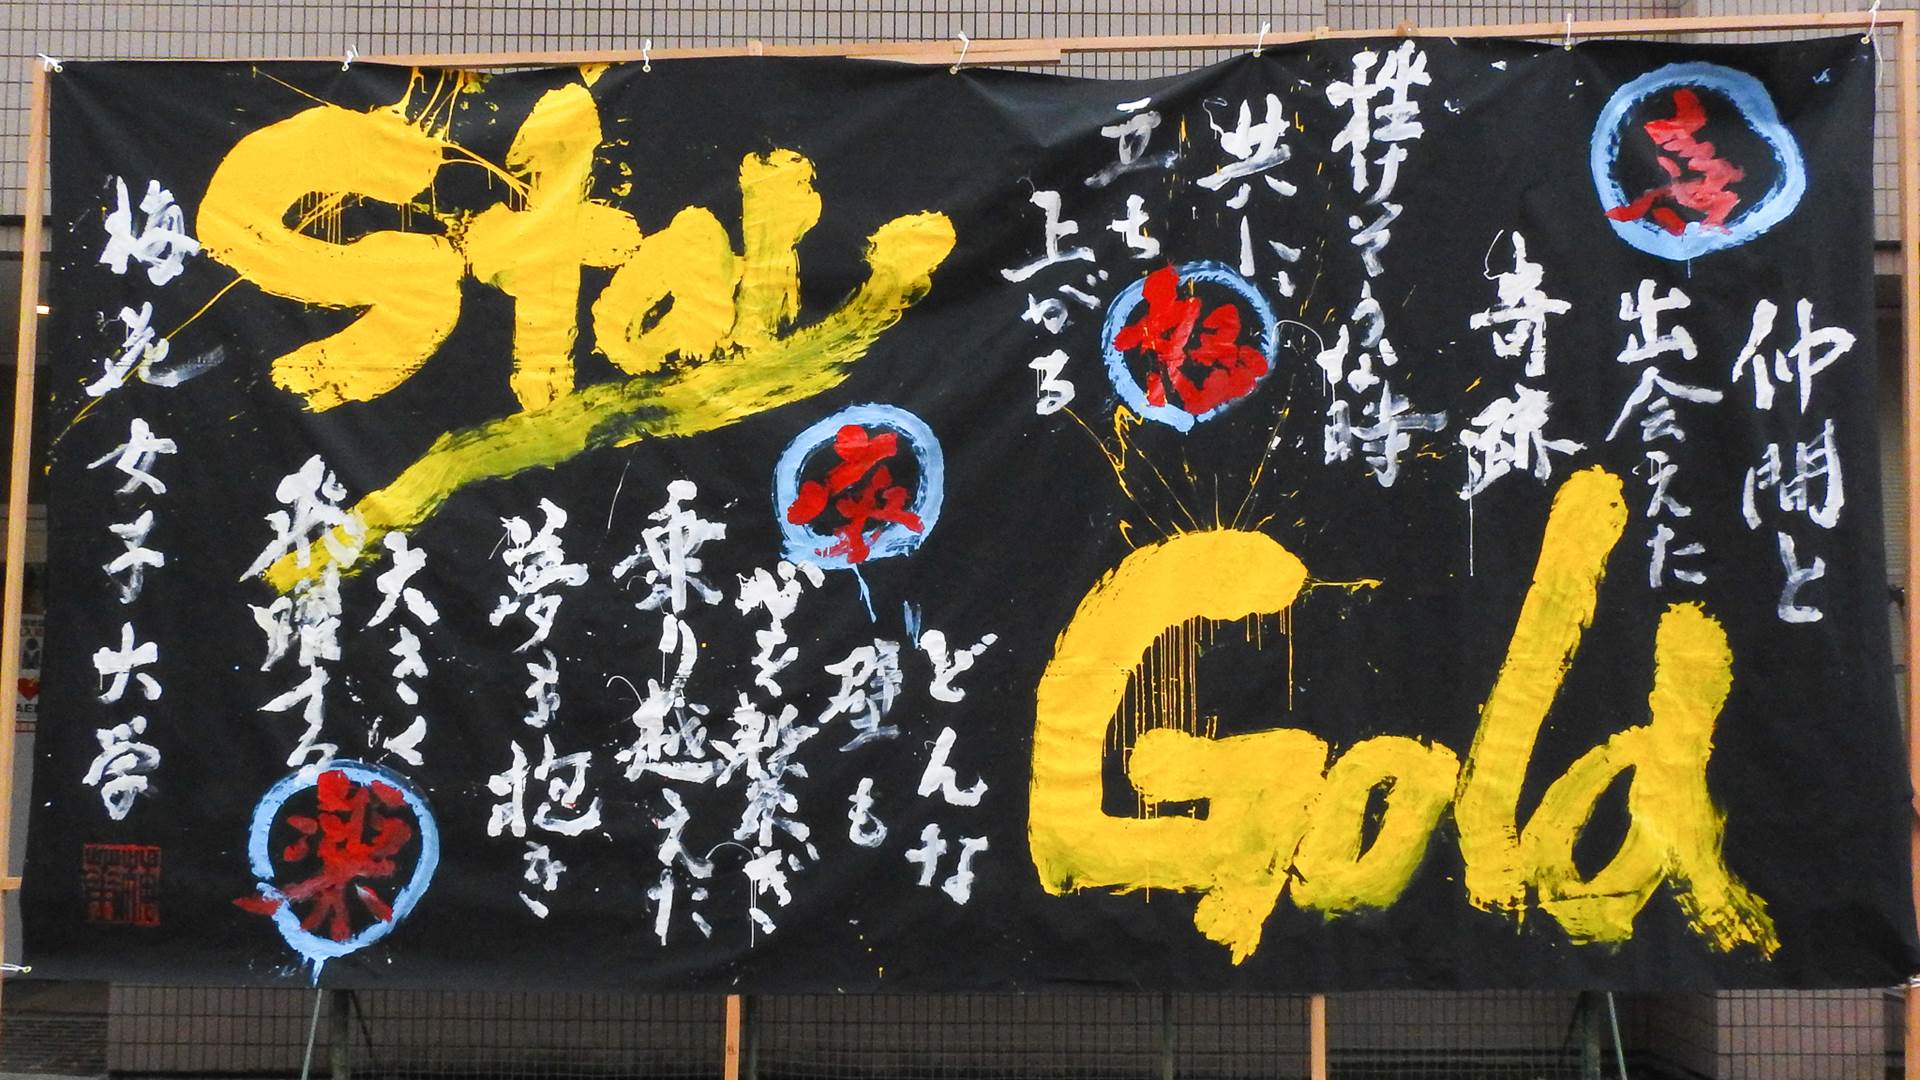 喜
仲間と
出会えた
奇跡
挫けそうな時
共に
立ち
上がる
怒
Gold
哀
どんな
壁も
を繋ぎ
乗り越えた
夢を抱き
大きく
飛躍する
楽
Star
梅花女子大学